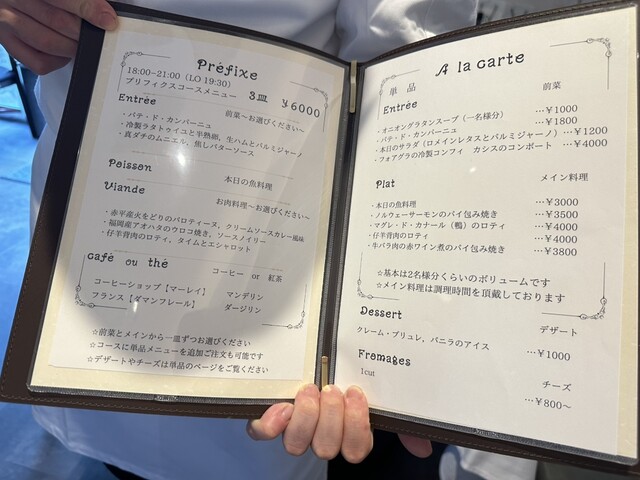 Préfixe
18:00~21:00 (LO 19:30)
プリフィクスコースメニュー 3皿 ¥6000
Entrée
前菜~お選びください~
・パテ・ド・カンパーニュ
・冷製ラタトゥイユと半熟卵、生ハムとパルミジャーノ
・真ダチのムニエル、焦しバターソース
Poisson
本日の魚料理
Viande
お肉料理~お選びください~
・赤平産火をどりのバロティーヌ、クリームソースカレー風味
・福岡産アオハタのウロコ焼き、ソースノイリー
・仔羊背肉のロティ、タイムとエシャロット
café ou thé
コーヒー or 紅茶
コーヒーショップ【マーレイ】 マンデリン
フランス【ダマンフレール】 ダージリン
☆前菜とメインから一皿ずつお選びください
☆コースに単品メニューを追加ご注文も可能です
☆デザートやチーズは単品のページをご覧ください
A la carte
単品 前菜
Entrée
・オニオングラタンスープ(一名様分) …¥1000
・パテ・ド・カンパーニュ …¥1800
・本日のサラダ(ロメインレタスとパルミジャーノ) …¥1200
・フォアグラの冷製コンフィ カシスのコンポート …¥4000
Plat
メイン料理
・本日の魚料理 …¥3000
・ノルウェーサーモンのパイ包み焼き …¥3500
・マグレ・ド・カナール(鴨)のロティ …¥4000
・仔羊背肉のロティ …¥4000
・牛バラ肉の赤ワイン煮のパイ包み焼き …¥3800
☆基本は2名様分くらいのボリュームです
☆メイン料理は調理時間を頂戴しております
Dessert
デザート
クレーム・ブリュレ、バニラのアイス …¥1000
Fromages
チーズ
1cut …¥800~